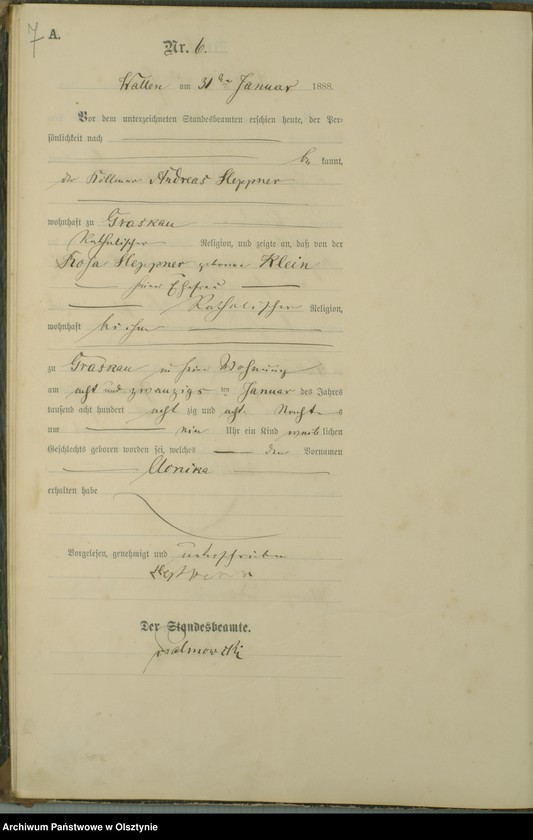 7 A.
Nr. 6.
Wallen am 31ten Januar 1888.
Vor dem unterzeichneten Standesbeamten erschien heute, der Per-
sönlichkeit nach
be kannt,
der Köllmer Andreas Heppner
wohnhaft zu Graskau
Katholischer Religion, und zeigte an, daß von der
Rosa Heppner geborene Klein
seiner Ehefrau
Katholischer Religion,
wohnhaft bei ihm
zu Graskau in seiner Wohnung
am acht und zwanzigsten Januar des Jahres
tausend acht hundert acht zig und acht Nachts
um ein Uhr ein Kind weiblichen
Geschlechts geboren worden sei, welches den Vornamen
Monika
erhalten habe
Vorgelesen, genehmigt und unterschrieben
Heppner
Der Standesbeamte.
Archiwum Państwowe w Olsztynie